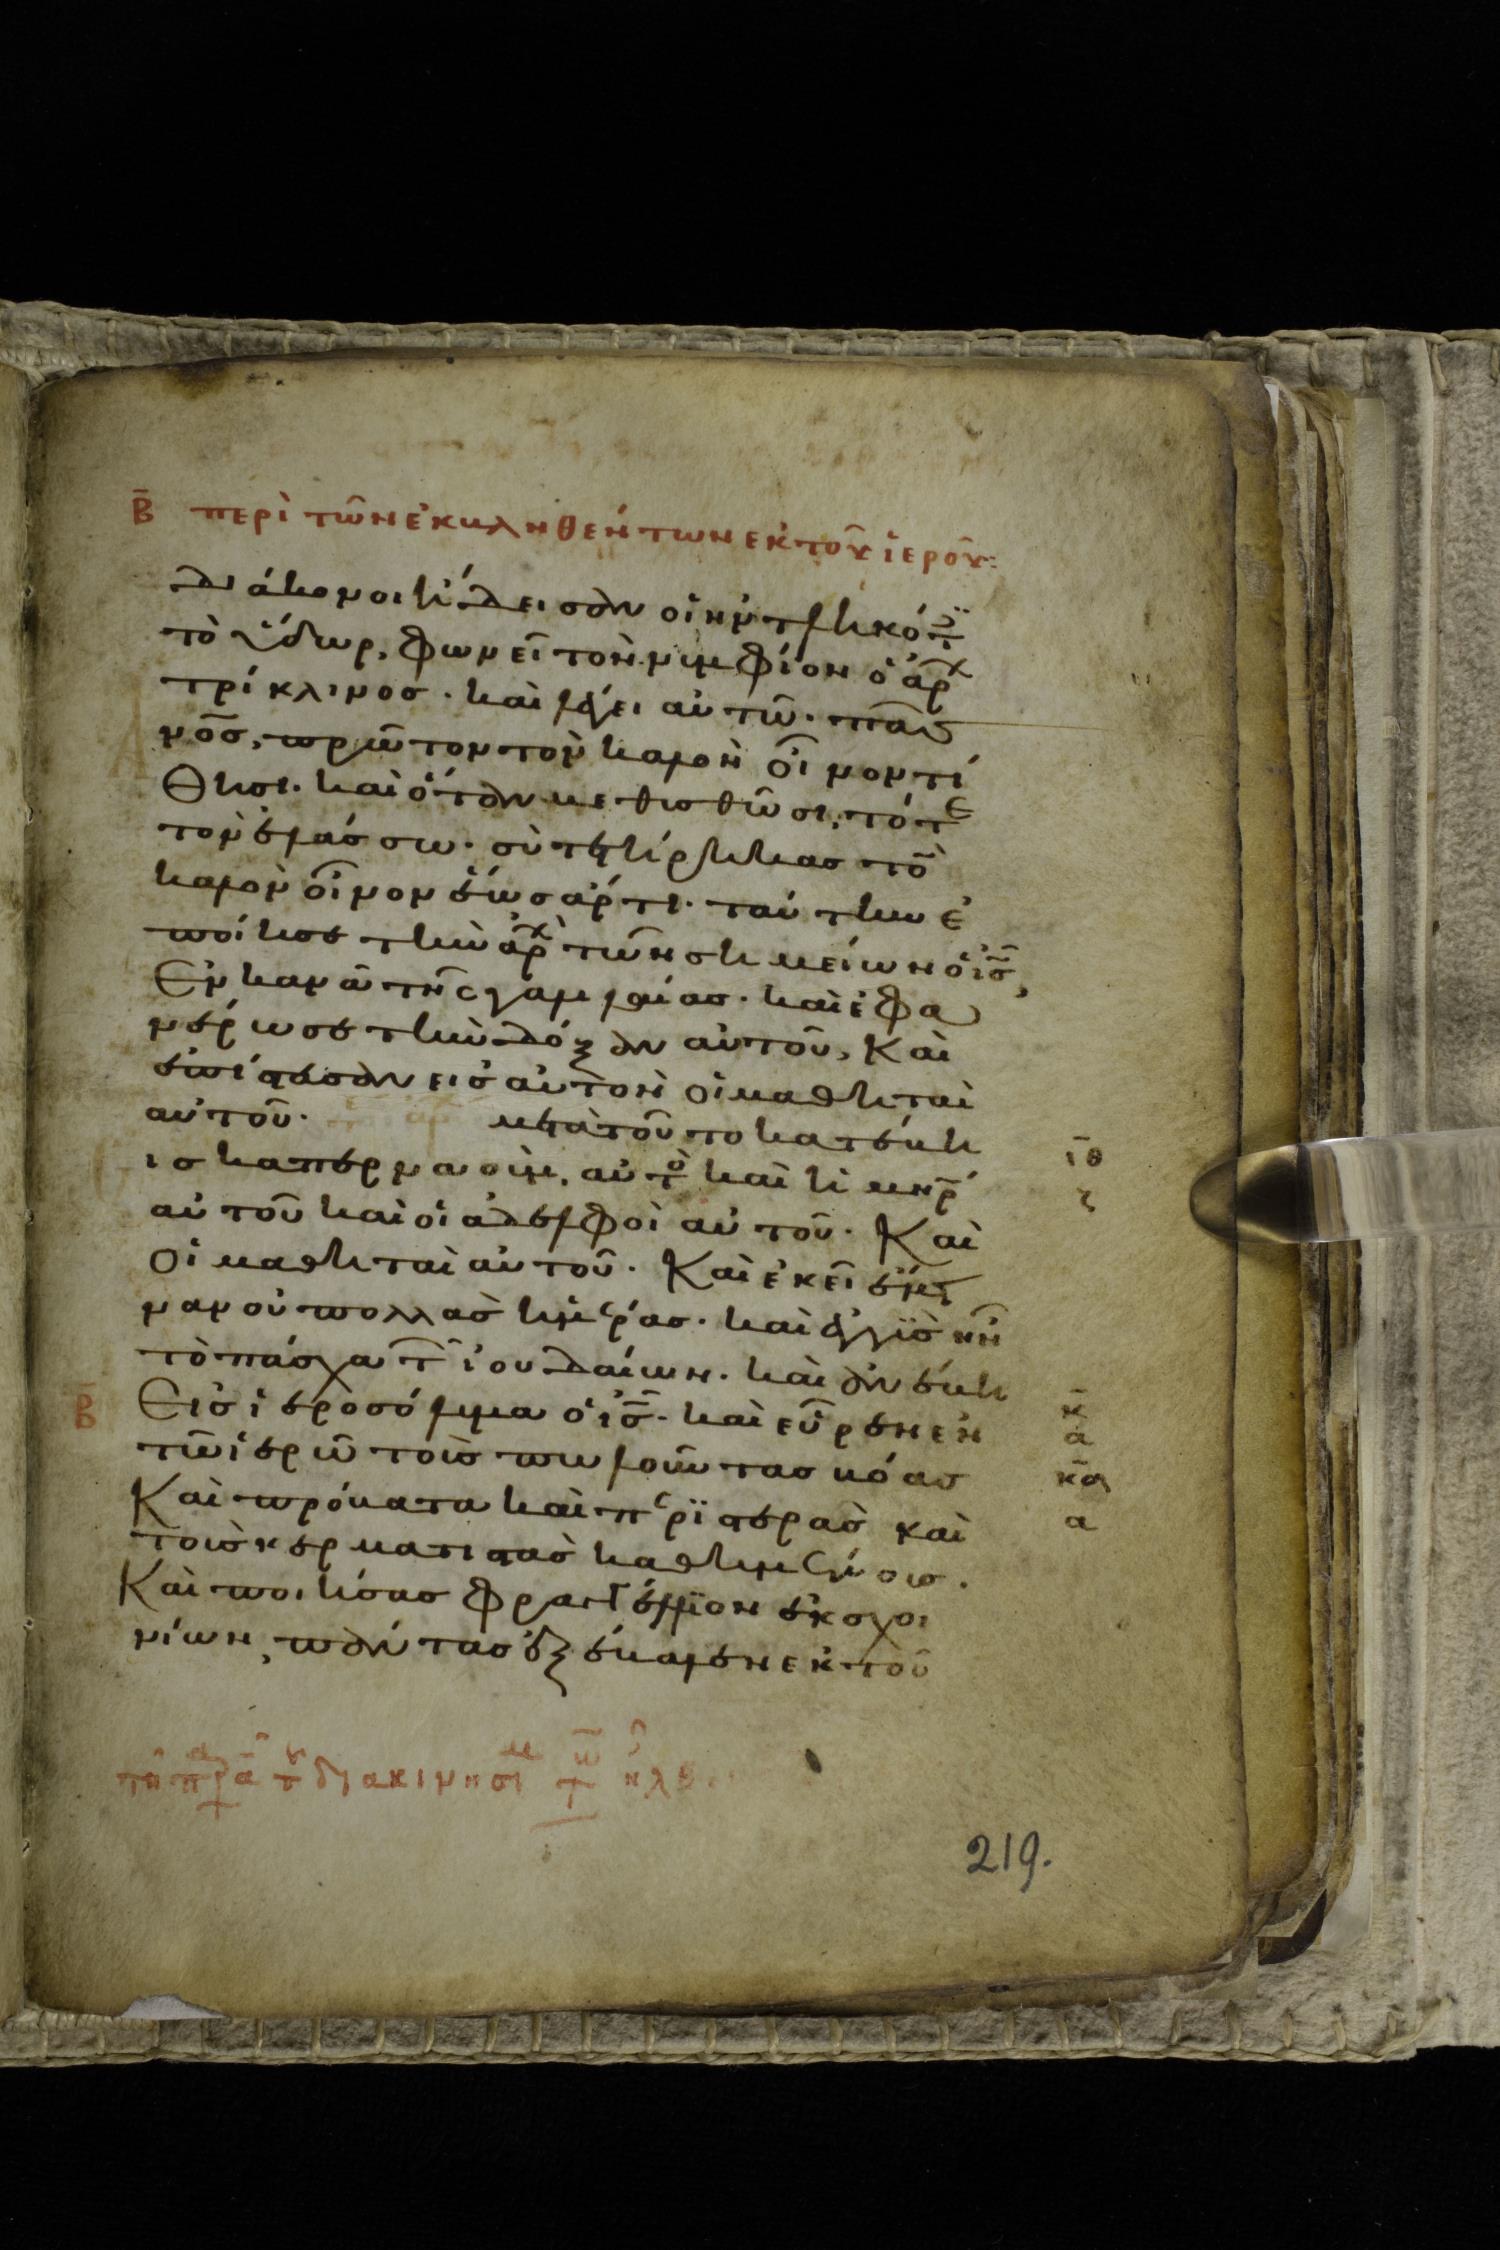 Β̄ περὶ τῶν ἐκβληθέντων ἐκ τοῦ ἱεροῦ:
διάκονοι ἤδεισαν οἱ ἠντληκότ
τὸ ὕδωρ, φωνεῖ τὸν νυμφίον ὁ ἀρχ
τρίκλινος. καὶ λέγει αὐτῶ. πᾶς
ἀν̅ο̅σ̅, πρῶτον τὸν καλὸν οἶνον τί
θησι. καὶ ὅταν μεθυσθῶσι, τότε
τὸν ἐλάσσω. σὺ τετήρηκας τὸ̅
καλὸν οἶνον ἕως ἄρτι. ταύτην ἐ
ποίησε τὴν ἀρχὴ τῶν σημείων ὁ ι̅σ̅,
Ἐν κανᾶ τῆς γαλιλαίας. καὶ ἐφα
νέρωσε τὴν δόξαν αὐτοῦ, Καὶ
ἐπίστευσαν εἰς αὐτὸν οἱ μαθηταὶ
αὐτοῦ. μετὰ τοῦτο κατέβη
ις καπερναοὺμ, αὐτὸ καὶ ἡ μη̅ρ̅
αὐτοῦ καὶ οἱ ἀδελφοὶ αὐτοῦ. Καὶ
Οἱ μαθηταὶ αὐτοῦ. Καὶ ἐκεῖ ἔμει
ναν οὐ πολλὰς ἡμέρας. καὶ ἐγγὺς ἦν
τὸ πάσχα τ̅ ἰουδαίων. καὶ ἀνέβη
Εἰς ἱεροσόλυμα ὁ ι̅σ̅. καὶ εὗρεν ἐν
τῶ ἱερῶ τοὺς πωλοῦντας βόας
Καὶ πρόβατα καὶ περιστερὰς καὶ
τοὺς κερματιστὰς καθημένους.
Καὶ ποιήσας φραγέλλιον ἐκ σχοι
νίων, πάντας ἐξέβαλεν ἐκ τοῦ
ι̅θ̅
ζ
Β̄
κ̅
α
κ̅α̅
α
219.